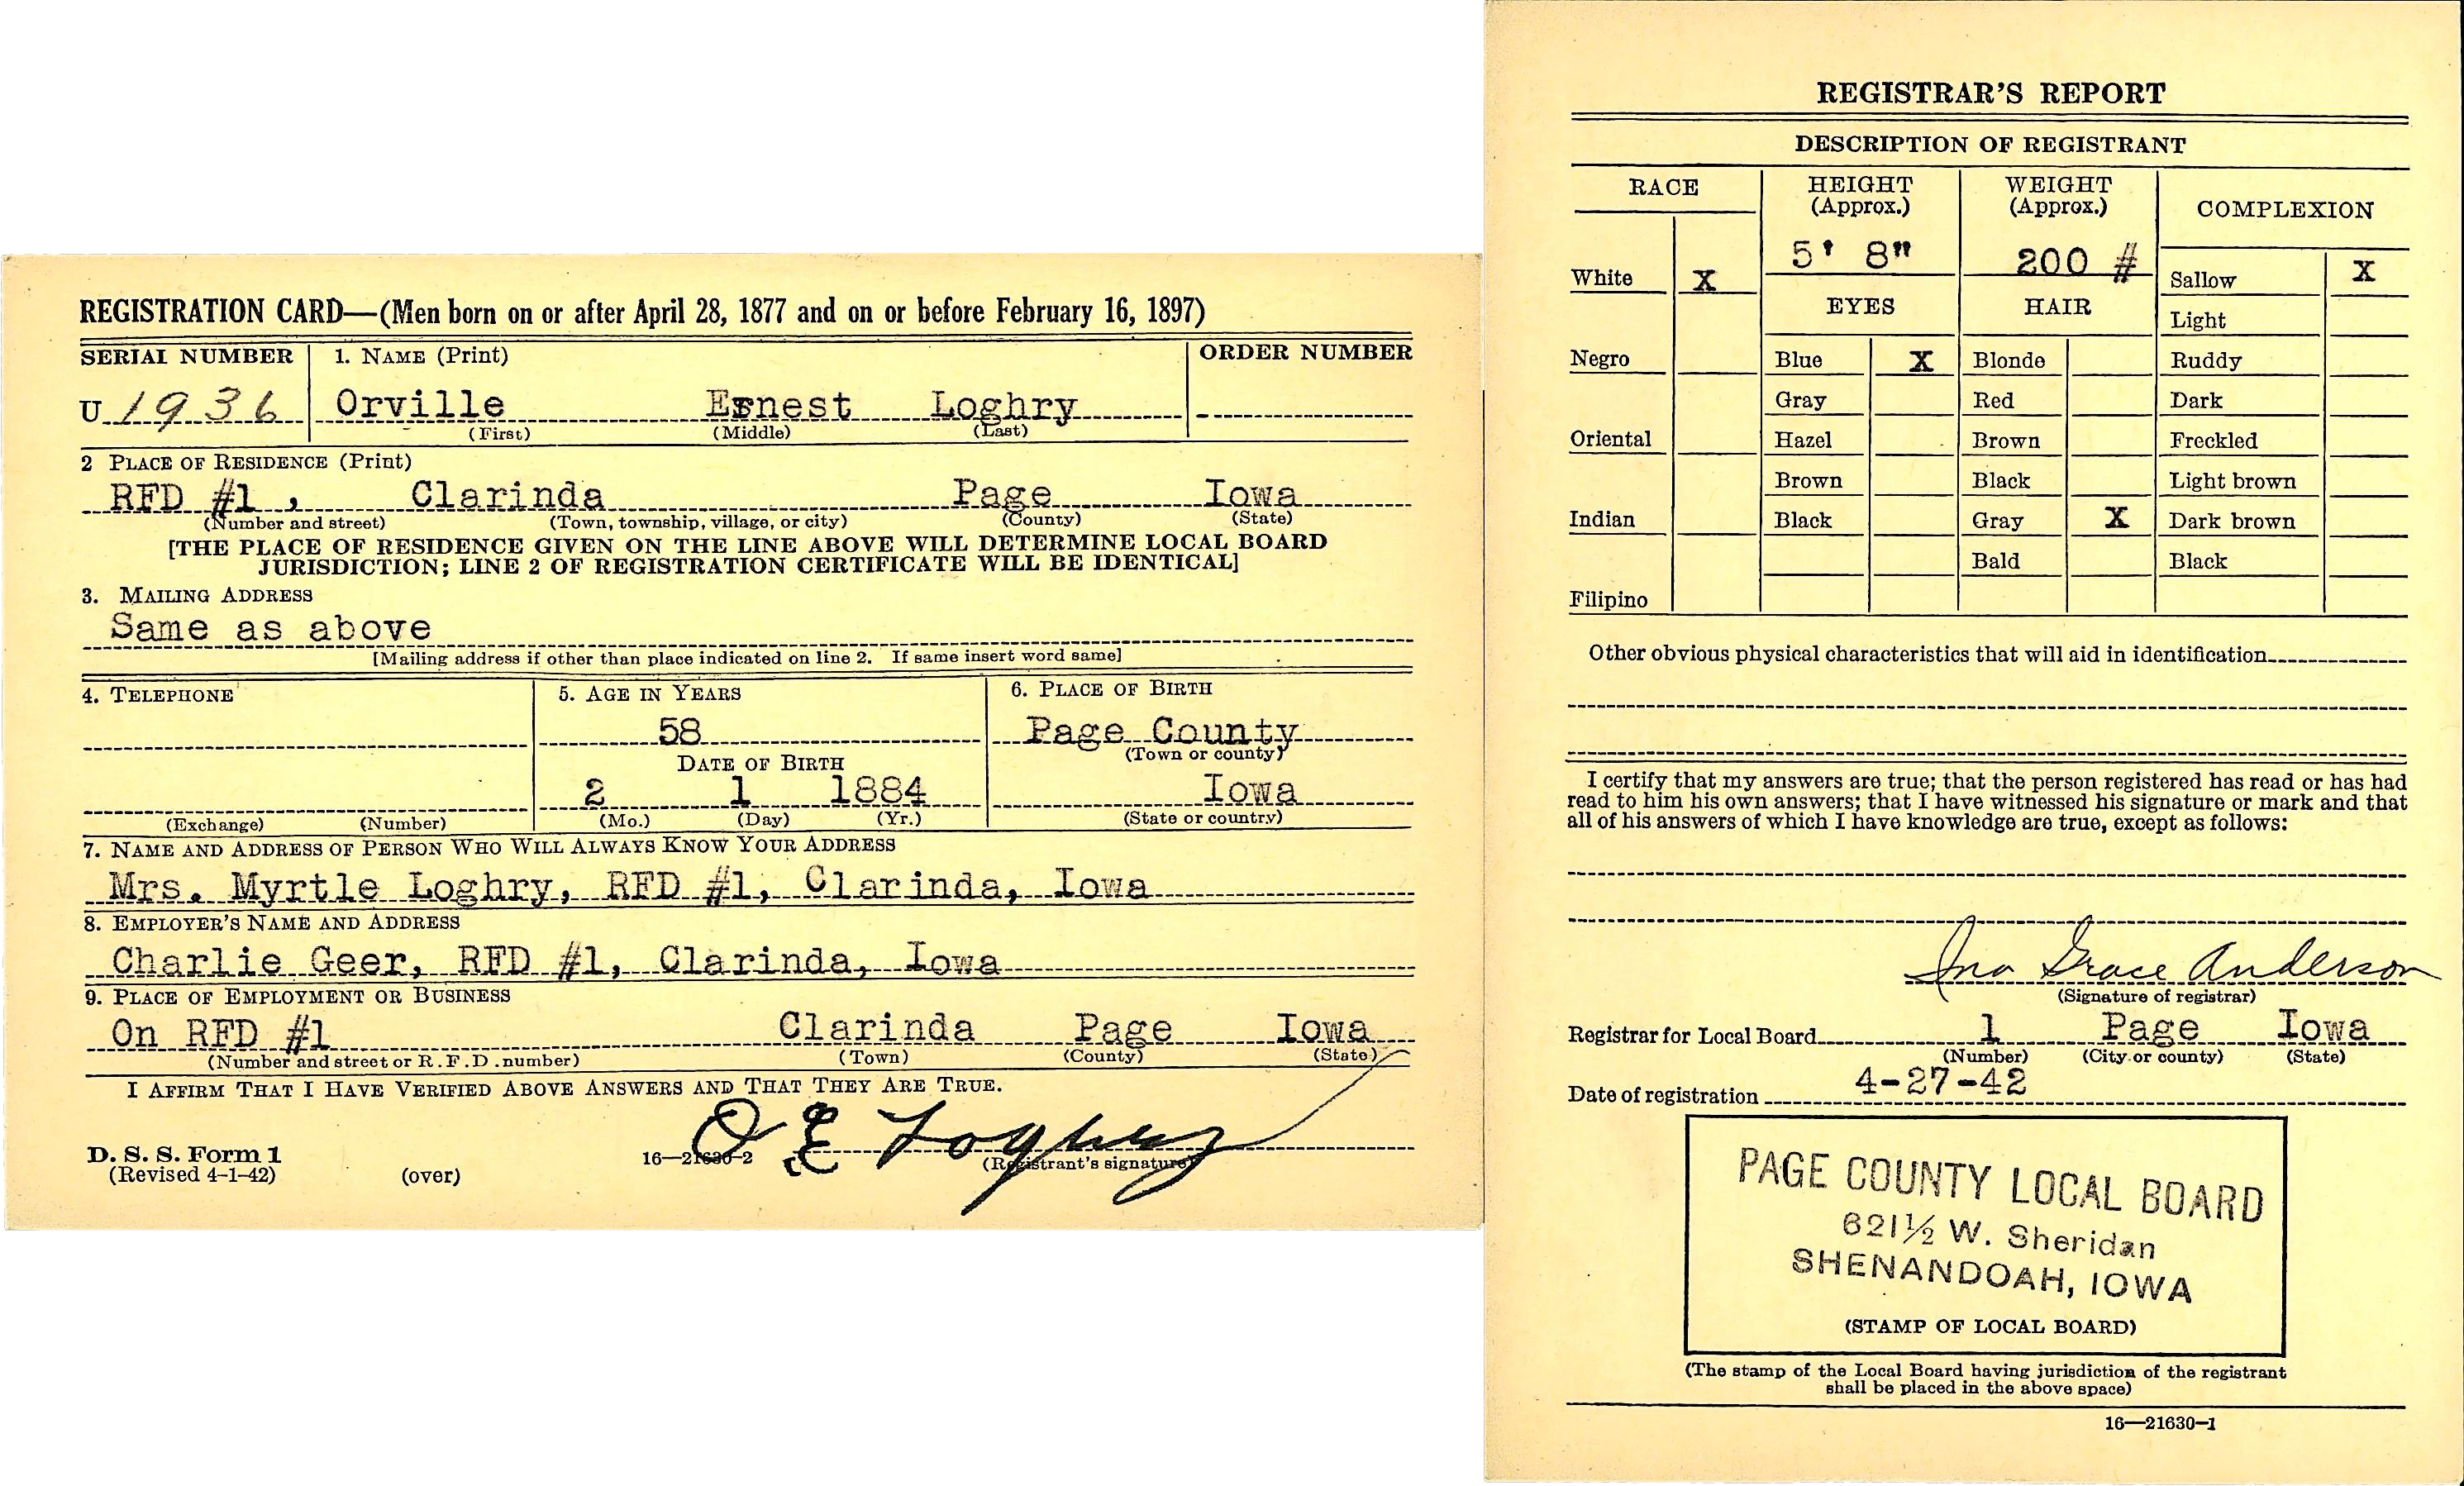 REGISTRATION CARD—(Men born on or after April 28, 1877 and on or before February 16, 1897)
SERIAL NUMBER 1. NAME (Print) ORDER NUMBER
U 1936 Orville Ernest Loghry
(First) (Middle) (Last)
2 PLACE OF RESIDENCE (Print)
RFD #1, Clarinda Page Iowa
(Number and street) (Town, township, village, or city) (County) (State)
[THE PLACE OF RESIDENCE GIVEN ON THE LINE ABOVE WILL DETERMINE LOCAL BOARD
JURISDICTION; LINE 2 OF REGISTRATION CERTIFICATE WILL BE IDENTICAL]
3. MAILING ADDRESS
Same as above
[Mailing address if other than place indicated on line 2. If same insert word same]
4. TELEPHONE 5. AGE IN YEARS 6. PLACE OF BIRTH
58 Page County
(Town or county)
DATE OF BIRTH
2 1 1884 Iowa
(Exchange) (Number) (Mo.) (Day) (Yr.) (State or country)
7. NAME AND ADDRESS OF PERSON WHO WILL ALWAYS KNOW YOUR ADDRESS
Mrs. Myrtle Loghry, RFD #1, Clarinda, Iowa
8. EMPLOYER'S NAME AND ADDRESS
Charlie Geer, RFD #1, Clarinda, Iowa
9. PLACE OF EMPLOYMENT OR BUSINESS
On RFD #1 Clarinda Page Iowa
(Number and street or R.F.D. number) (Town) (County) (State)
I AFFIRM THAT I HAVE VERIFIED ABOVE ANSWERS AND THAT THEY ARE TRUE.
O E Loghry
D. S. S. Form 1 16—21630-2 (Registrant's signature)
(Revised 4-1-42) (over)
REGISTRAR'S REPORT
DESCRIPTION OF REGISTRANT
RACE HEIGHT (Approx.) WEIGHT (Approx.) COMPLEXION
5' 8" 200 #
White X EYES HAIR Sallow X
Light
Negro Blue X Blonde Ruddy
Gray Red Dark
Oriental Hazel Brown Freckled
Brown Black Light brown
Indian Black Gray X Dark brown
Bald Black
Filipino
Other obvious physical characteristics that will aid in identification
I certify that my answers are true; that the person registered has read or has had
read to him his own answers; that I have witnessed his signature or mark and that
all of his answers of which I have knowledge are true, except as follows:
Ina Grace Anderson
(Signature of registrar)
Registrar for Local Board 1 Page Iowa
(Number) (City or county) (State)
Date of registration 4-27-42
PAGE COUNTY LOCAL BOARD
621½ W. Sheridan
SHENANDOAH, IOWA
(STAMP OF LOCAL BOARD)
(The stamp of the Local Board having jurisdiction of the registrant
shall be placed in the above space)
16—21630-1